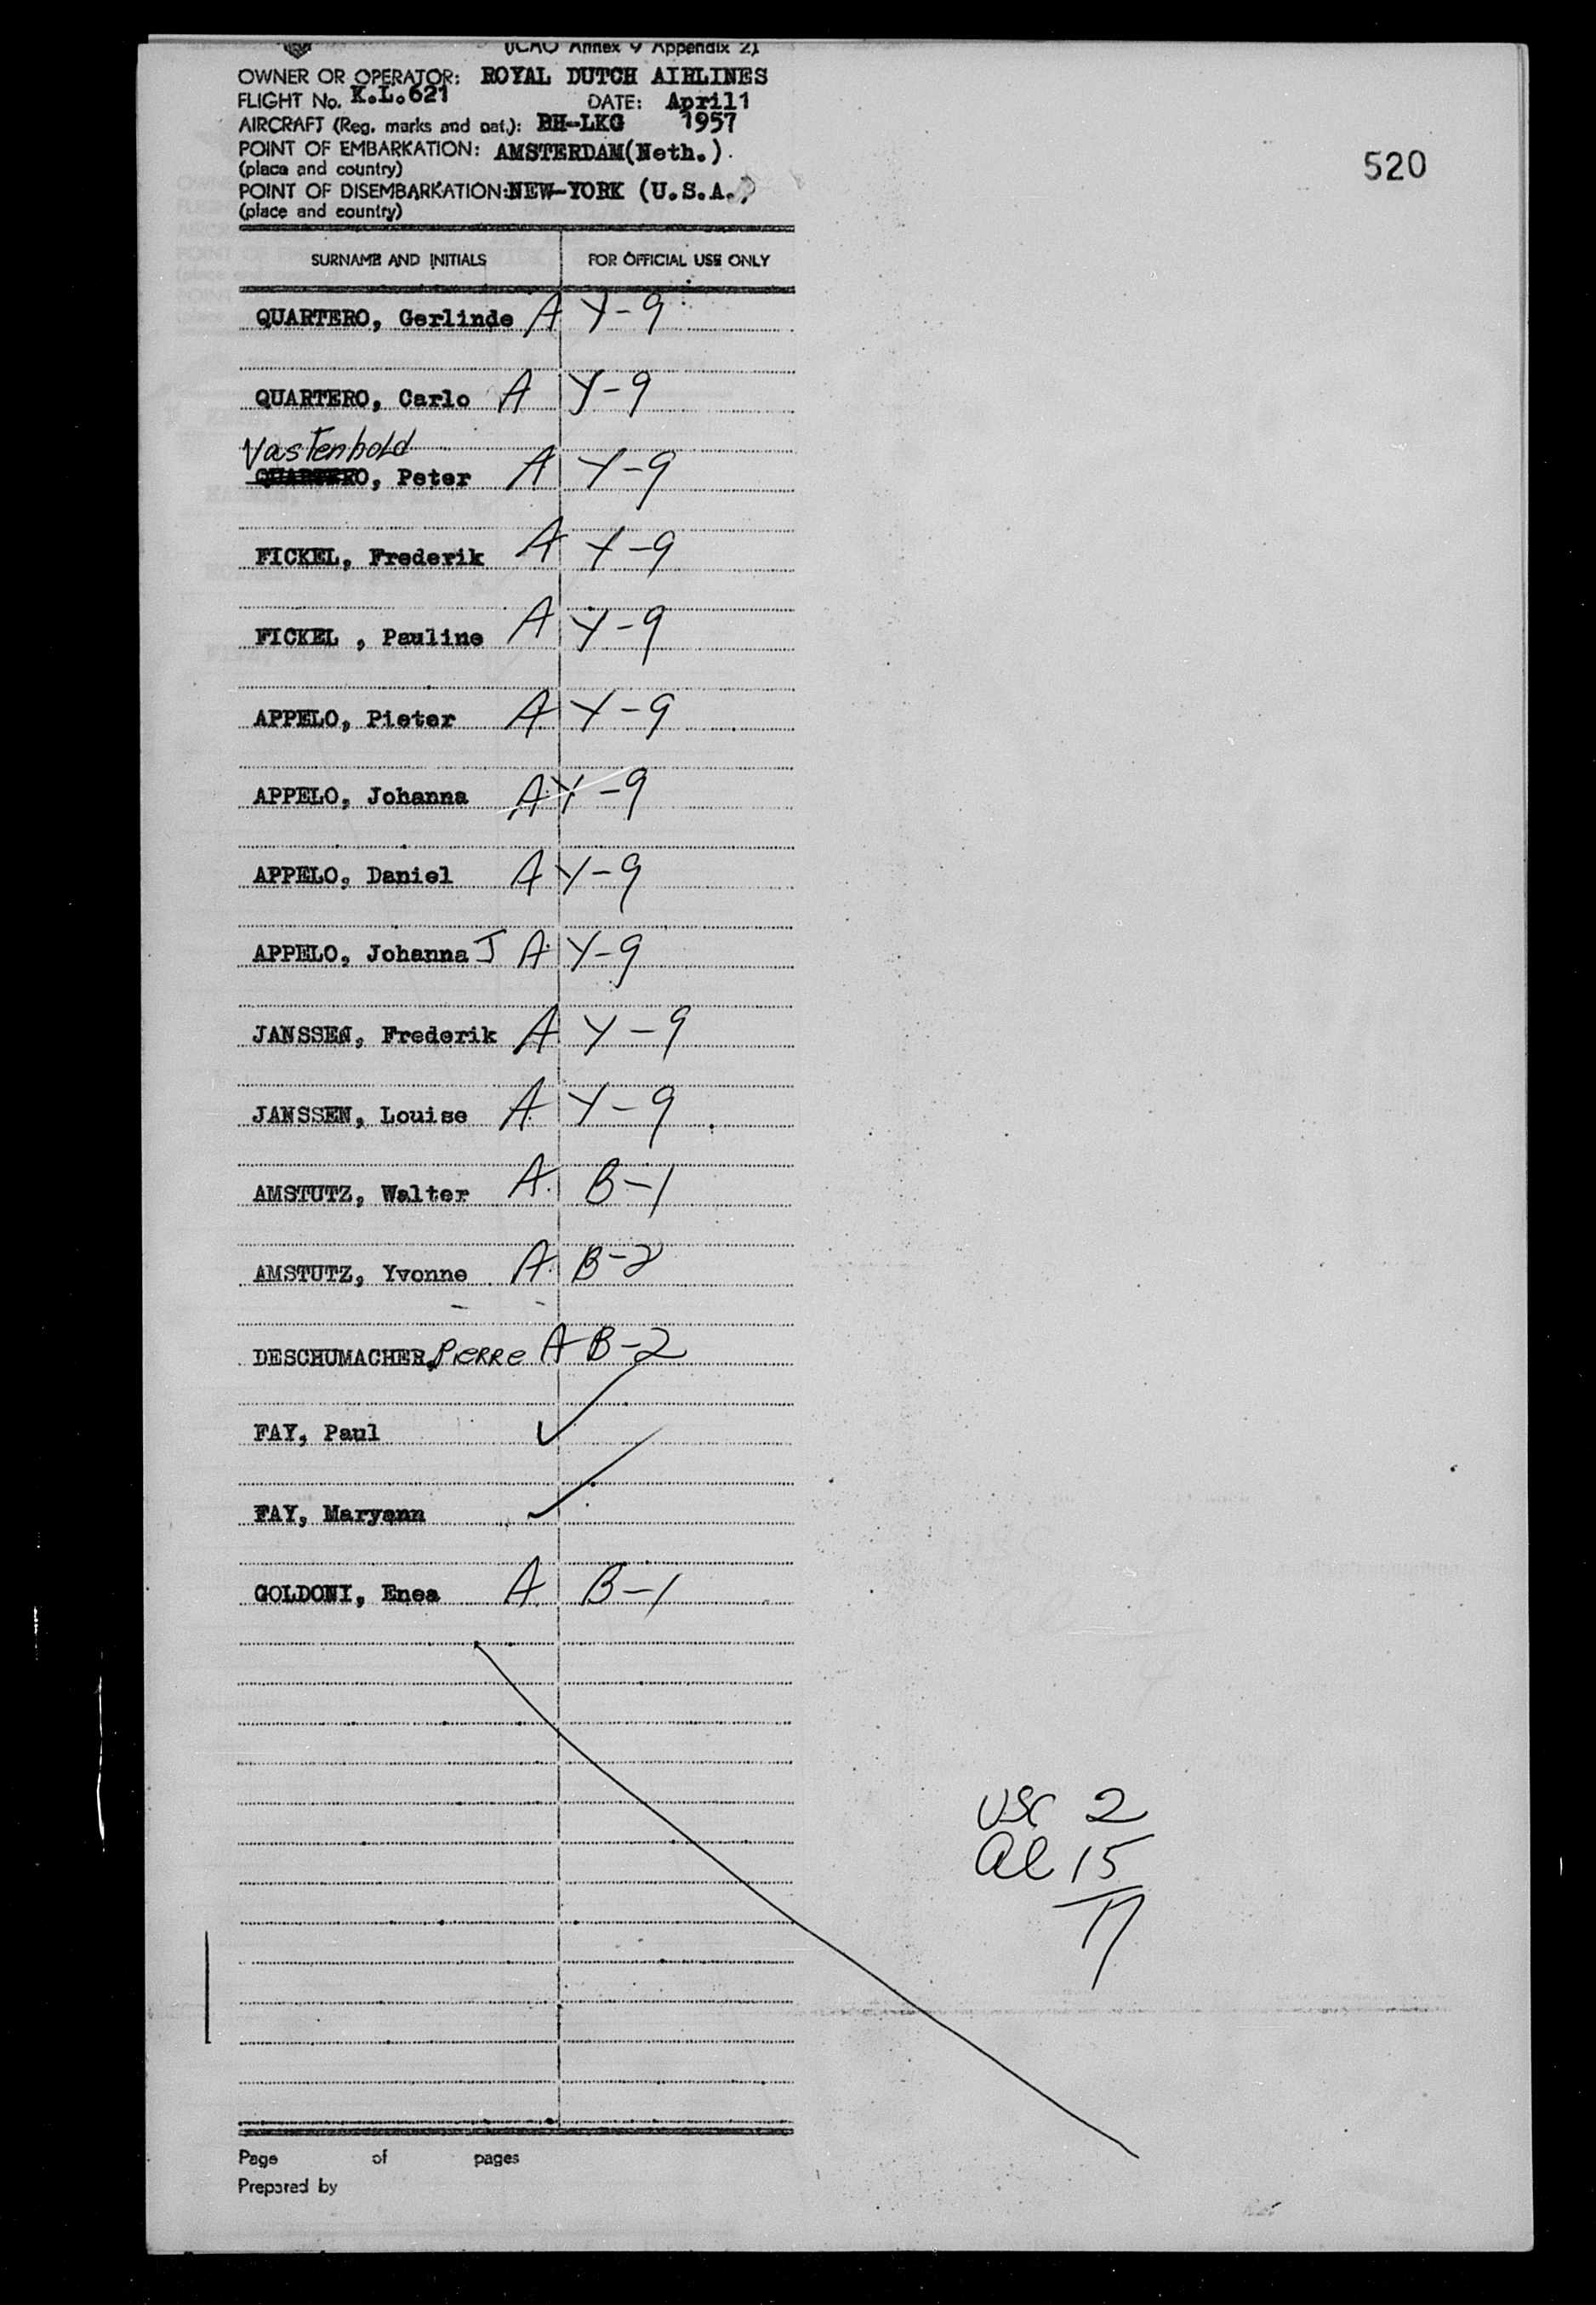 (ICAO Annex 9 Appendix 2)
OWNER OR OPERATOR: ROYAL DUTCH AIRLINES
FLIGHT No. K.L.621 DATE: April1
AIRCRAFT (Reg. marks and nat.): PH-LKG 1957
POINT OF EMBARKATION: AMSTERDAM(Neth.).
(place and country)
520
POINT OF DISEMBARKATION:NEW-YORK (U.S.A.)
(place and country)
SURNAME AND INITIALS FOR OFFICIAL USE ONLY
QUARTERO, Gerlinde A Y-9
QUARTERO, Carlo A Y-9
Vastenhold
QUARTERO, Peter A Y-9
FICKEL, Frederik A Y-9
FICKEL , Pauline A Y-9
APPELO, Pieter A Y-9
APPELO, Johanna A Y-9
APPELO, Daniel A Y-9
APPELO, Johanna J A Y-9
JANSSEN, Frederik A Y-9
JANSSEN, Louise A Y-9
AMSTUTZ, Walter A B-1
AMSTUTZ, Yvonne A B-2
DESCHUMACHER, Pierre A B-2
FAY, Paul ✓
FAY, Maryann ✓
GOLDONI, Enea A B-1
USC 2
Al 15
17
Page of pages
Prepared by